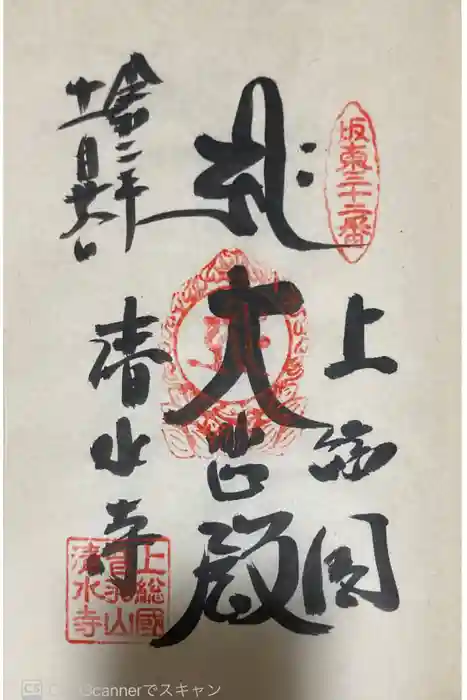 坂東三十二番
上総国
大悲殿
令和二年
十一月
清水寺
上総國
音羽山
清水寺
CS CamScannerでスキャン